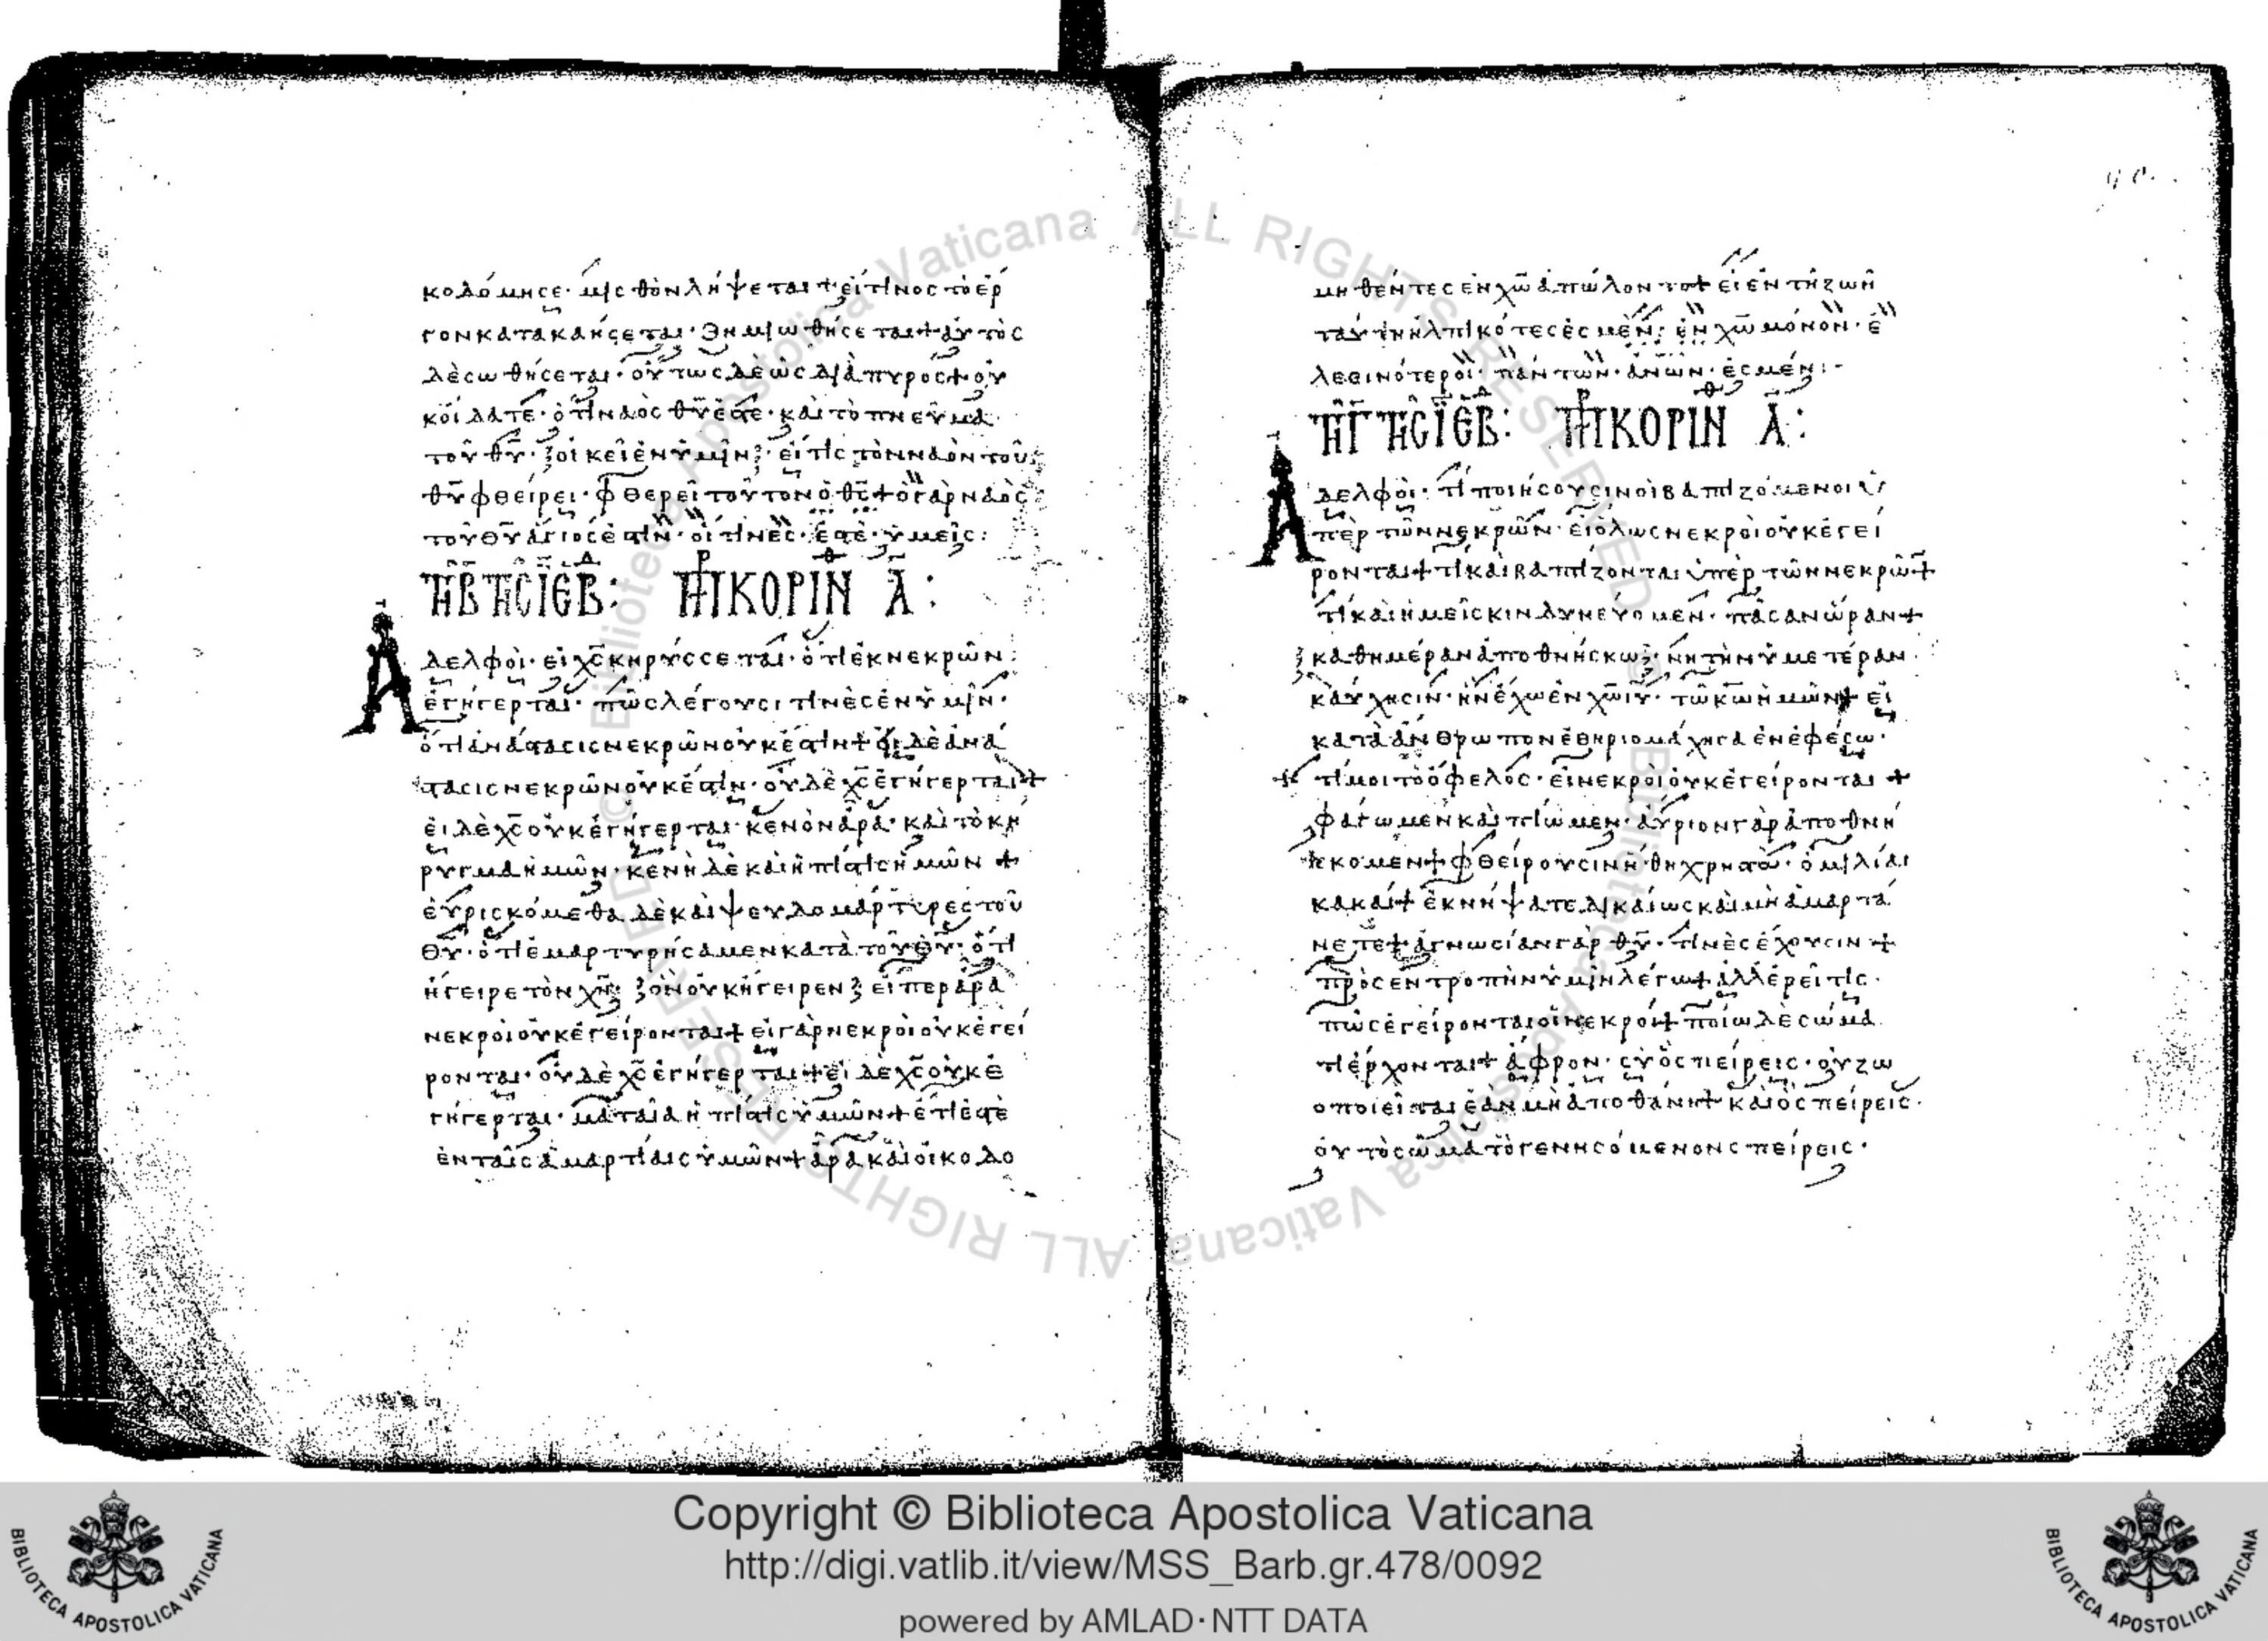 κοδόμησε· μισθὸν λήψεται + εἴ τινος τὸ ἔρ
γον κατακαήσεται· ζημιωθήσεται + αὐτὸς
δὲ σωθήσεται· οὕτως δὲ ὡς διὰ πυρός + οὐ
κοίδατε· ὅτι ναὸς θ̅υ̅ ἐστε· καὶ τὸ πνεῦμα
τοῦ θ̅υ̅· οἰκεῖ ἐν ὑμῖν· εἴ τις τὸν ναὸν τοῦ
θ̅υ̅ φθείρει· φθερεῖ τοῦτον ὁ θ̅ς̅ + ὁ γὰρ ναὸς
τοῦ θ̅υ̅ ἅγιός ἐστιν· οἵτινές· ἐστὲ· ὑμεῖς:
ΤΗ Β̅ ΤΗΣ Ι̅Ε̅ ΕΒΔ: ΠΡ ΚΟΡΙΝΘ Α̅:
Ἀδελφοὶ· εἰ χ̅ς̅ κηρύσσεται· ὅτι ἐκ νεκρῶν
ἐγήγερται· πῶς λέγουσι τινὲς ἐν ὑμῖν·
ὅτι ἀνάστασις νεκρῶν οὐκ ἔστιν + εἰ δὲ ἀνά
στασις νεκρῶν οὐκ ἔστιν· οὐδὲ χ̅ς̅ ἐγήγερται +
εἰ δὲ χ̅ς̅ οὐκ ἐγήγερται· κενὸν ἄρα· καὶ τὸ κή
ρυγμα ἡμῶν· κενὴ δὲ καὶ ἡ πίστις ἡμῶν +
εὑρισκόμεθα δὲ καὶ ψευδομάρτυρες τοῦ
θ̅υ̅· ὅτι ἐμαρτυρήσαμεν κατὰ τοῦ θ̅υ̅· ὅτι
ἤγειρε τὸν χ̅ν̅· ὃν οὐκ ἤγειρεν εἴπερ ἄρα
νεκροὶ οὐκ ἐγείρονται + εἰ γὰρ νεκροὶ οὐκ ἐγεί
ρονται· οὐδὲ χ̅ς̅ ἐγήγερται + εἰ δὲ χ̅ς̅ οὐκ ἐ
γήγερται· ματαία ἡ πίστις ὑμῶν + ἔτι ἐστὲ
ἐν ταῖς ἁμαρτίαις ὑμῶν + ἄρα καὶ οἱ κο
μηθέντες ἐν χ̅ω̅ ἀπώλοντο + εἰ ἐν τῇ ζωῇ
ταύτῃ ἠλπικότες ἐσμὲν· ἐν χ̅ω̅ μόνον· ἐ
λεεινότεροι· πάντων· ἀν̅ω̅ν· ἐσμέν:-
ΤΗ Γ̅ ΤΗΣ Ι̅Ε̅ ΕΒΔ: ΠΡ ΚΟΡΙΝΘ Α̅:
Ἀδελφοὶ· τί ποιήσουσιν οἱ βαπτιζόμενοι ὑ
πὲρ τῶν νεκρῶν· εἰ ὅλως νεκροὶ οὐκ ἐγεί
ρονται + τί καὶ βαπτίζονται ὑπὲρ τῶν νεκρῶν +
τί καὶ ἡμεῖς κινδυνεύομεν· πᾶσαν ὥραν +
καθημέραν ἀποθνήσκω· νὴ τὴν ὑμετέραν
καύχησιν· ἣν ἔχω ἐν χ̅ω̅ ι̅υ̅· τῶ κ̅ω̅ ἡμῶν + εἰ
κατὰ ἄνθρωπον ἐθηριομάχησα ἐν ἐφέσω·
τί μοι τὸ ὄφελος· εἰ νεκροὶ οὐκ ἐγείρονται +
φάγωμεν καὶ πίωμεν· αὔριον γὰρ ἀποθνή
σκομεν + φθείρουσιν ἤθη χρηστὰ· ὁμιλίαι
κακαί + ἐκνήψατε δικαίως καὶ μὴ ἁμαρτά
νετε + ἀγνωσίαν γὰρ θ̅υ̅· τινὲς ἔχουσιν +
πρὸς ἐντροπὴν ὑμῖν λέγω + ἀλλ' ἐρεῖ τίς·
πῶς ἐγείρονται οἱ νεκροί + ποίω δὲ σώμα
τι ἔρχονται + ἄφρον· σὺ ὃ σπείρεις· οὐ ζω
οποιεῖται ἐὰν μὴ ἀποθάνη + καὶ ὃ σπείρεις·
οὐ τὸ σῶμα τὸ γενησόμενον σπείρεις·
Copyright © Biblioteca Apostolica Vaticana
http://digi.vatlib.it/view/MSS_Barb.gr.478/0092
powered by AMLAD·NTT DATA
BIBLIOTECA APOSTOLICA VATICANA
BIBLIOTECA APOSTOLICA VATICANA